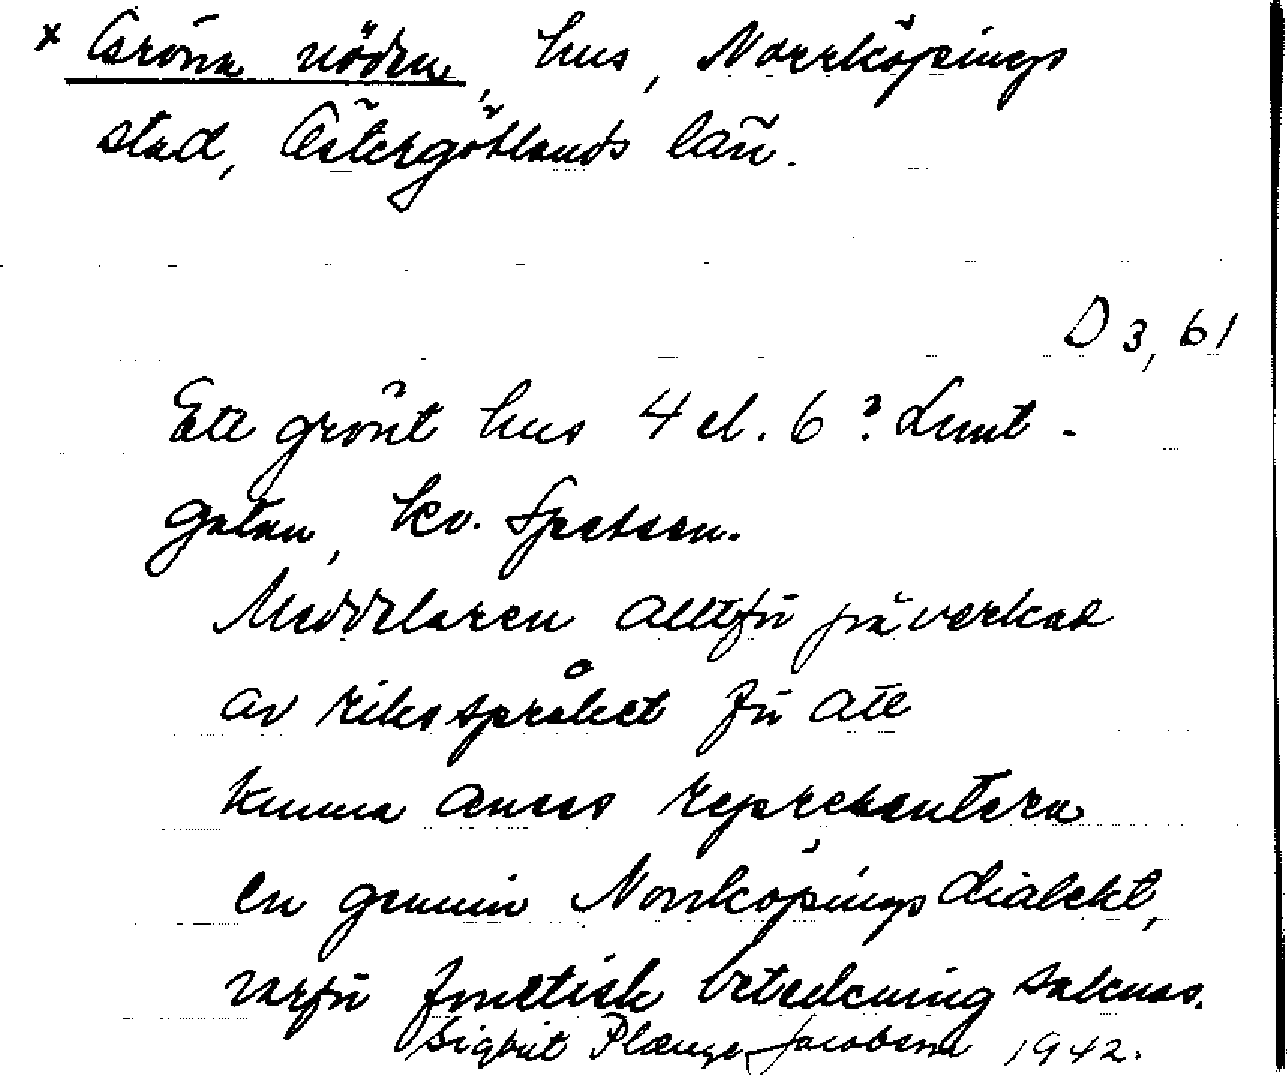 x Gröna nöden, hus, Norrköpings
stad, Östergötlands län.
D 3, 61
Ett grönt hus 4 el. 6? Lunt-
gatan, kv. Spetsen.
Meddelaren alltför påverkad
av riksspråket för att
kunna anses representera
en genuin Norrköpingsdialekt,
varför fonetisk beteckning saknas.
Sigbrit Plænge Jacobson 1942.